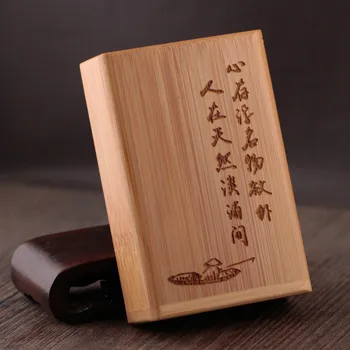 心存浮名物欲外
人在天然淡泊间